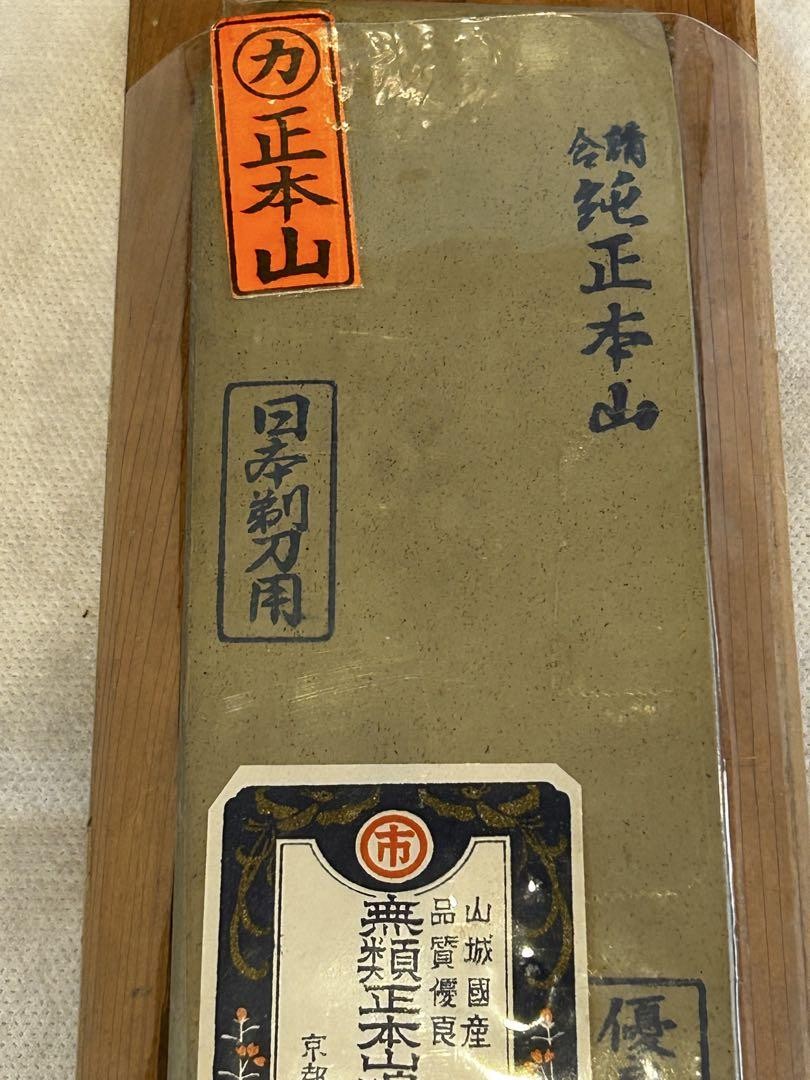 カ
正本山
請合
純正本山
日本剃刀用
市
山城國産
品質優良
無類正本山
京都
優